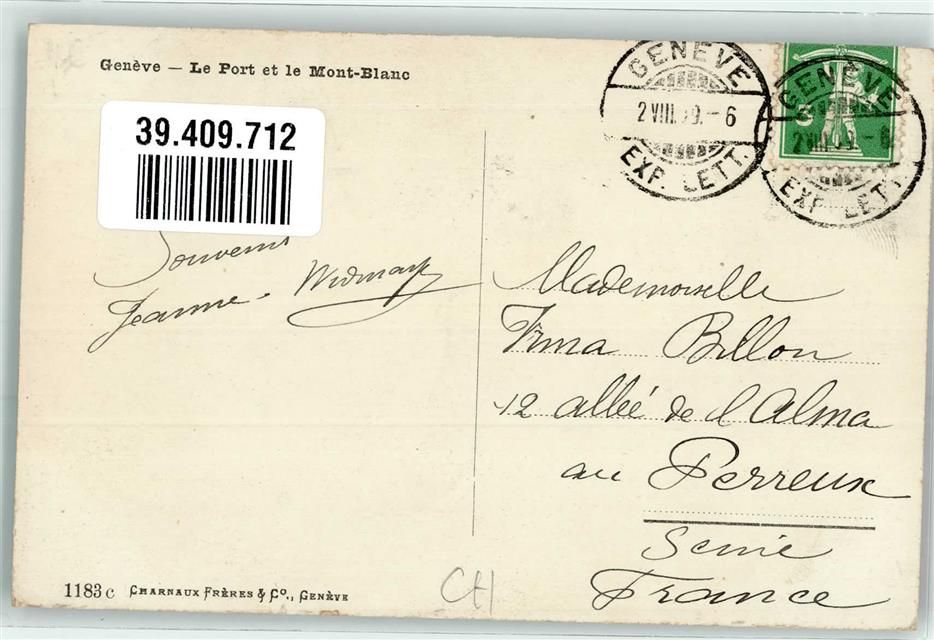 Genève — Le Port et le Mont-Blanc
39.409.712
GENÈVE
2 VIII. 09. - 6
EXP. LETT.
5
GENÈVE
2 VIII. 09. - 6
EXP. LETT.
Souvenir
Jeanne.
Mademoiselle
Irma Billon
12 allée de l'Alma
au Perreux
Seine
France
1183 c CHARNAUX FRÈRES & Cº., GENÈVE
CH